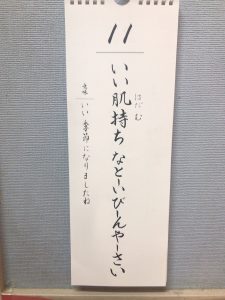 11
はだ む
いい肌持ち なとーいびーんやーさい
意味
いい季節になりましたね